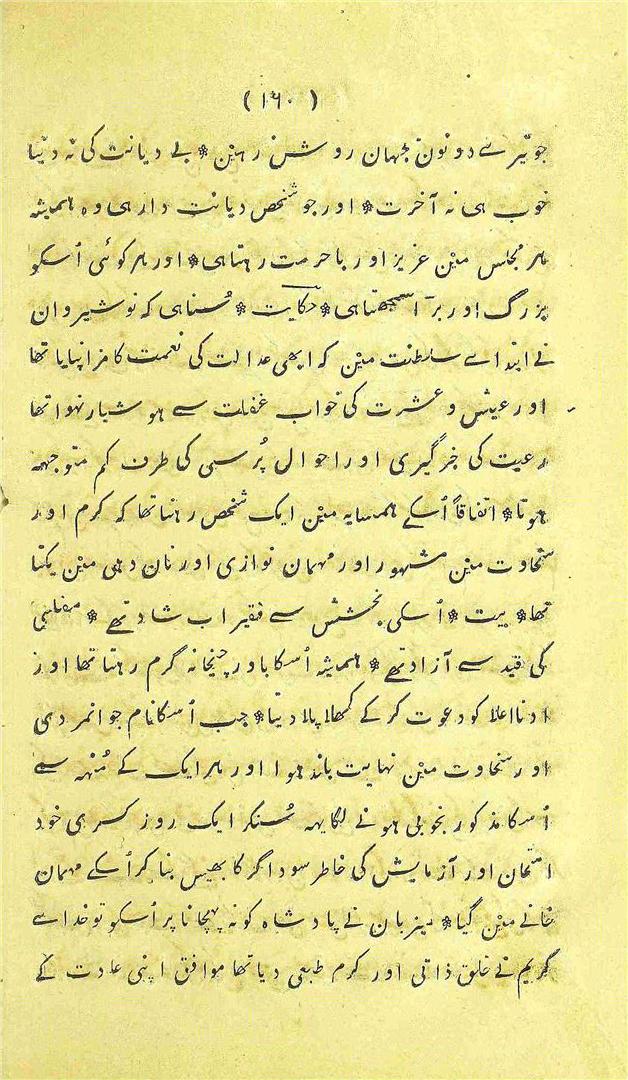 ( ۱۶۰ )
جو تیرے دونون جہان روشن رہین * بے دیانت کی نہ دنیا
خوب ہی نہ آخرت * اور جو شخص دیانت دار ہی وہ ہمیشہ
ہر مجلس مین عزیز اور باحرمت رہتا ہی * اور ہر کوئی اُسکو
بزرگ اور بڑا سمجھتا ہی * حکایت * سُنا ہی کہ نوشیروان
نے ابتداے سلطنت مین کہ ابھی عدالت کی نعمت کا مزا نپایا تھا
اور عیش و عشرت کی خواب غفلت سے ہوشیار نہوا تھا
رعیت کی خبرگیری اور احوال پُرسی کی طرف کم متوجہہ
ہوتا * اتفاقاً اُسکے ہمسایہ مین ایک شخص رہتا تھا کہ کرم اور
سخاوت مین مشہور اور مہمان نوازی اور نان دہی مین یکتا
تھا * بیت * اُسکی بخشش سے فقیر اب شاد تھے * مفلسی
کی قید سے آزاد تھے * ہمیشہ اُسکا باورچیخانہ گرم رہتا تھا اور
ادنا اعلا کو دعوت کر کے کھلا پلا دیتا * جب اُسکا نام جوانمردی
اور سخاوت مین نہایت بلند ہوا اور ہر ایک کے مُنہہ سے
اُسکا مذکور بخوبی ہونے لگا یہہ سُنکر ایک روز کسریٰ خود
امتحان اور آزمایش کی خاطر سوداگر کا بھیس بنا کر اُسکے مہمان
خانے مین گیا * میزبان نے پادشاہ کو نہ پہچانا پر اُسکو تو خداے
کریم نے خلق ذاتی اور کرم طبعی دیا تھا موافق اپنی عادت کے